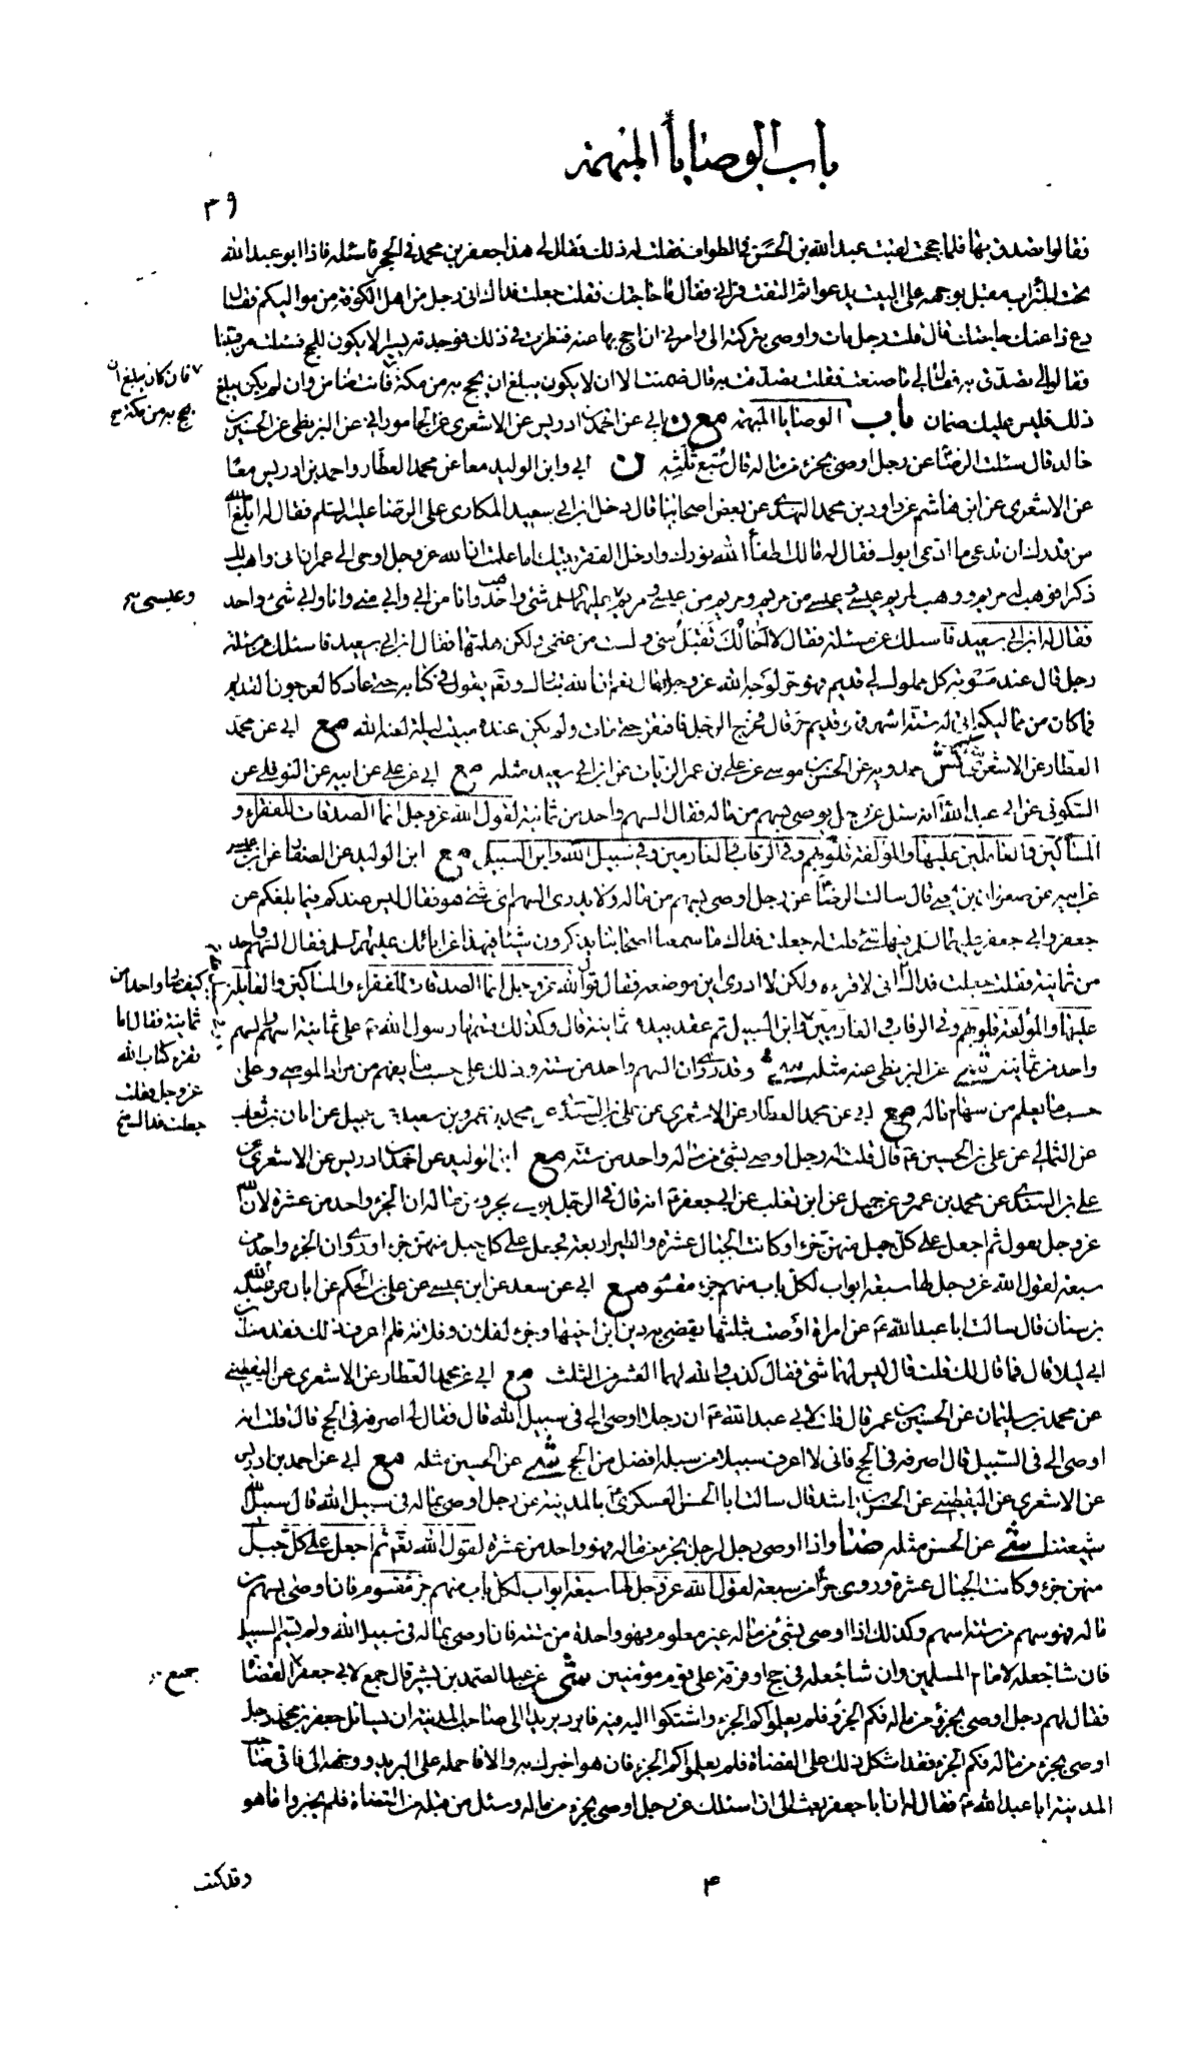 باب الوصايا المبهمة
٣٩
فقالوا تصدق بها فلما حججت لقيت عبد الله بن الحسن في الطواف فقلت له ذلك فقال لي هذا جعفر بن محمد في الحجر فاسئله فاذا ابو عبد الله
تحت الميزاب مقبل بوجهه على البيت يدعو ثم التفت فرآني فقال ما حاجتك فقلت جعلت فداك اني رجل من اهل الكوفة من مواليكم فقال
دع ذا عنك حاجتك قال قلت رجل مات واوصى بتركته الي وامرني ان احج بها عنه فنظرت في ذلك فوجدته يسيرا لا يكون للحج فسئلت من قبلنا
فقالوا لي تصدق به فقال لي ما صنعت فقلت تصدقت به قال ضمنت الا ان لا يكون يبلغ ان يحج به من مكة فانت ضامن وان لم يكن يبلغ
فان كان يبلغ ان
يحج به من مكة صح
ذلك فليس عليك ضمان باب الوصايا المبهمة مع ن ابي عن احمد بن ادريس عن الاشعري عن الجاموراني عن البزنطي عن الحسين بن
خالد قال سئلت الرضا عن رجل اوصى بجزء من ماله قال سُبع ثلثه ن ابي وابن الوليد معا عن محمد العطار واحمد بن ادريس معا
عن الاشعري عن ابن هاشم عن داود بن محمد النهدي عن بعض اصحابنا قال دخل ابن ابي سعيد المكاري على الرضا عليه السلم فقال له ابلغ الله
من قدرك ان تدعي ما ادعى ابوك فقال له مالك اطفأ الله نورك وادخل الفقر بيتك اما علمت ان الله عز وجل اوحى الى عمران اني واهب لك
ذكرا فوهب له مريم ووهب لمريم عيسى فعيسى من مريم ومريم من عيسى ومريم عليهما السلم شئ واحد وانا من ابي وابي مني وانا وابي شئ واحد
وعيسى صح
فقال له ابن ابي سعيد فاسئلك عن مسئلة فقال لا اخالك تقبل مني ولست من غنمي ولكن هلمها فقال ابن ابي سعيد فاسئلك عن مسئلة
رجل قال عند موته كل مملوك لي قديم فهو حر لوجه الله عز وجل قال نعم ان الله تبارك وتعالى يقول في كتابه حتى عاد كالعرجون القديم
فما كان من مماليكه اتى له ستة اشهر فهو قديم حر قال فخرج الرجل فافتقر حتى مات ولم يكن عنده مبيت ليلة لعنه الله مع ابي عن محمد
العطار عن الاشعري مثله كش حمدويه عن الحسن بن موسى عن علي بن عمر الزيات عن ابن ابي سعيد مثله مع ابي عن علي عن ابيه عن النوفلي عن
السكوني عن ابي عبد الله انه سئل عن رجل يوصي بسهم من ماله فقال السهم واحد من ثمانية لقول الله عز وجل انما الصدقات للفقراء و
المساكين والعاملين عليها والمؤلفة قلوبهم وفي الرقاب والغارمين وفي سبيل الله وابن السبيل مع ابن الوليد عن الصفار عن ابن عيسى
عن ابيه عن صفوان بن يحيى قال سالت الرضا عن رجل اوصى بسهم من ماله ولا يدرى السهم اي شئ هو فقال ليس عندكم فيما بلغكم عن
جعفر وابي جعفر عليهما السلم فيها شئ قلت له جعلت فداك ما سمعنا اصحابنا يذكرون شيئا في هذا عن ابائك عليهم السلم فقال السهم واحد
من ثمانية فقلت جعلت فداك اني لاقرءه ولكن لا ادري اين موضعه فقال قول الله عز وجل انما الصدقات للفقراء والمساكين والعاملين
كيف صار واحدا من
ثمانية فقال اما
تقرء كتاب الله
عز وجل فقلت
جعلت فداك صح
عليها والمؤلفة قلوبهم وفي الرقاب والغارمين وابن السبيل ثم عقد بيده ثمانية قال وكذلك قسمها رسول الله ص على ثمانية اسهم والسهم
واحد من ثمانية شي عن البزنطي عنه مثله وقد روي ان السهم واحد من ستة وذلك على حسب ما يفهم من مراد الموصي وعلى
حسب ما يعلم من سهام ماله مع ابي عن محمد العطار عن الاشعري عن علي بن السندي عن محمد بن عمرو بن سعيد عن جميل عن ابان بن تغلب
عن الثمالي عن علي بن الحسين ع قال قلت له رجل اوصى بشئ من ماله واحد من ستة مع ابن الوليد عن احمد بن ادريس عن الاشعري عن
علي بن السندي عن محمد بن عمرو عن جميل عن ابن تغلب عن ابي جعفر ع انه قال في الرجل يوصي بجزء من ماله ان الجزء واحد من عشرة لان الله
عز وجل يقول ثم اجعل على كل جبل منهن جزءا وكانت الجبال عشرة والطير اربعة فجعل على كل جبل منهن جزءا وروي ان الجزء واحد من
سبعة لقول الله عز وجل لها سبعة ابواب لكل باب منهم جزء مقسوم مع ابي عن سعد عن ابن عيسى عن علي بن الحكم عن ابان عن عبد الله
بن سنان قال سالت ابا عبد الله ع عن امراة اوصت بثلثها يقضى به دين ابن اخيها وجزء لفلان وفلانة فلم اعرف ذلك فقدمنا الى ابن
ابي ليلا قال فما قال لك قلت قال ليس لهما شئ فقال كذب والله لهما العشر من الثلث مع ابي عن محمد العطار عن الاشعري عن اليقطيني
عن محمد بن سليمان عن الحسين بن عمر قال قلت لابي عبد الله ع ان رجلا اوصى الي في سبيل الله قال فقال لي اصرفه في الحج قال قلت انه
اوصى الي في السبيل قال اصرفه في الحج فاني لا اعرف سبيلا من سبله افضل من الحج شي عن الحسين مثله مع ابي عن احمد بن ادريس
عن الاشعري عن اليقطيني عن الحسن بن راشد قال سالت ابا الحسن العسكري بالمدينة عن رجل اوصى بماله في سبيل الله قال سبيل الله
شيعتنا شي عن الحسن مثله ضا واذا اوصى رجل لرجل بجزء من ماله فهو واحد من عشرة لقول الله تعالى ثم اجعل على كل جبل
منهن جزء وكانت الجبال عشرة وروي جزءا من سبعة لقول الله عز وجل لها سبعة ابواب لكل باب منهم جزء مقسوم فان اوصى بسهم من
ماله فهو سهم من ستة اسهم وكذلك اذا اوصى بشئ من ماله غير معلوم فهو واحد من ستة فان اوصى بماله في سبيل الله ولم يسم السبيل
فان شا جعله لامام المسلمين وان شا جعله في حج او فرقه على قوم مؤمنين شي عن عبد الصمد بن بشير قال جمع لابي جعفر القضاة
جميع صح
فقال لهم رجل اوصى بجزء من ماله فكم الجزء فلم يعلموا كم الجزء واشتكوا اليه فيه فابرد بريدا الى صاحب المدينة ان يسائل جعفر بن محمد رجل
اوصى بجزء من ماله فكم الجزء فقد اشكل ذلك على القضاة فلم يعلموا كم الجزء فان هو اخبرك به والا فاحمله على البريد ووجهه الي فاتى صاحب
المدينة ابا عبد الله ع فقال له ان ابا جعفر بعث الي ان اسئلك عن رجل اوصى بجزء من ماله وسئل من قبله من القضاة فلم يخبروا ما هو
وقد كتب
٤